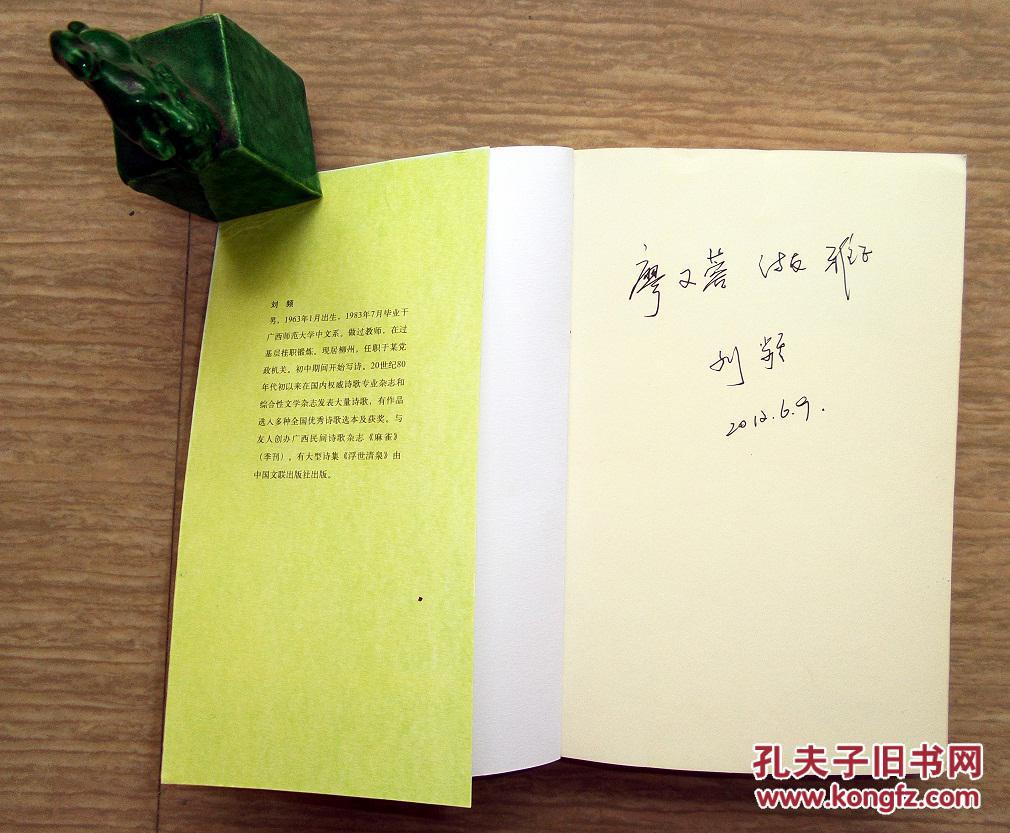 刘 频
男，1963年1月出生，1983年7月毕业于
广西师范大学中文系。做过教师，在过
基层挂职锻炼。现居柳州，任职于某党
政机关。初中期间开始写诗。20世纪80
年代初以来在国内权威诗歌专业杂志和
综合性文学杂志发表大量诗歌，有作品
选入多种全国优秀诗歌选本及获奖。与
友人创办广西民间诗歌杂志《麻雀》
（季刊）。有大型诗集《浮世清泉》由
中国文联出版社出版。
廖又蓉 诗友 雅正
刘频
2012.6.9.
孔夫子旧书网
www.kongfz.com